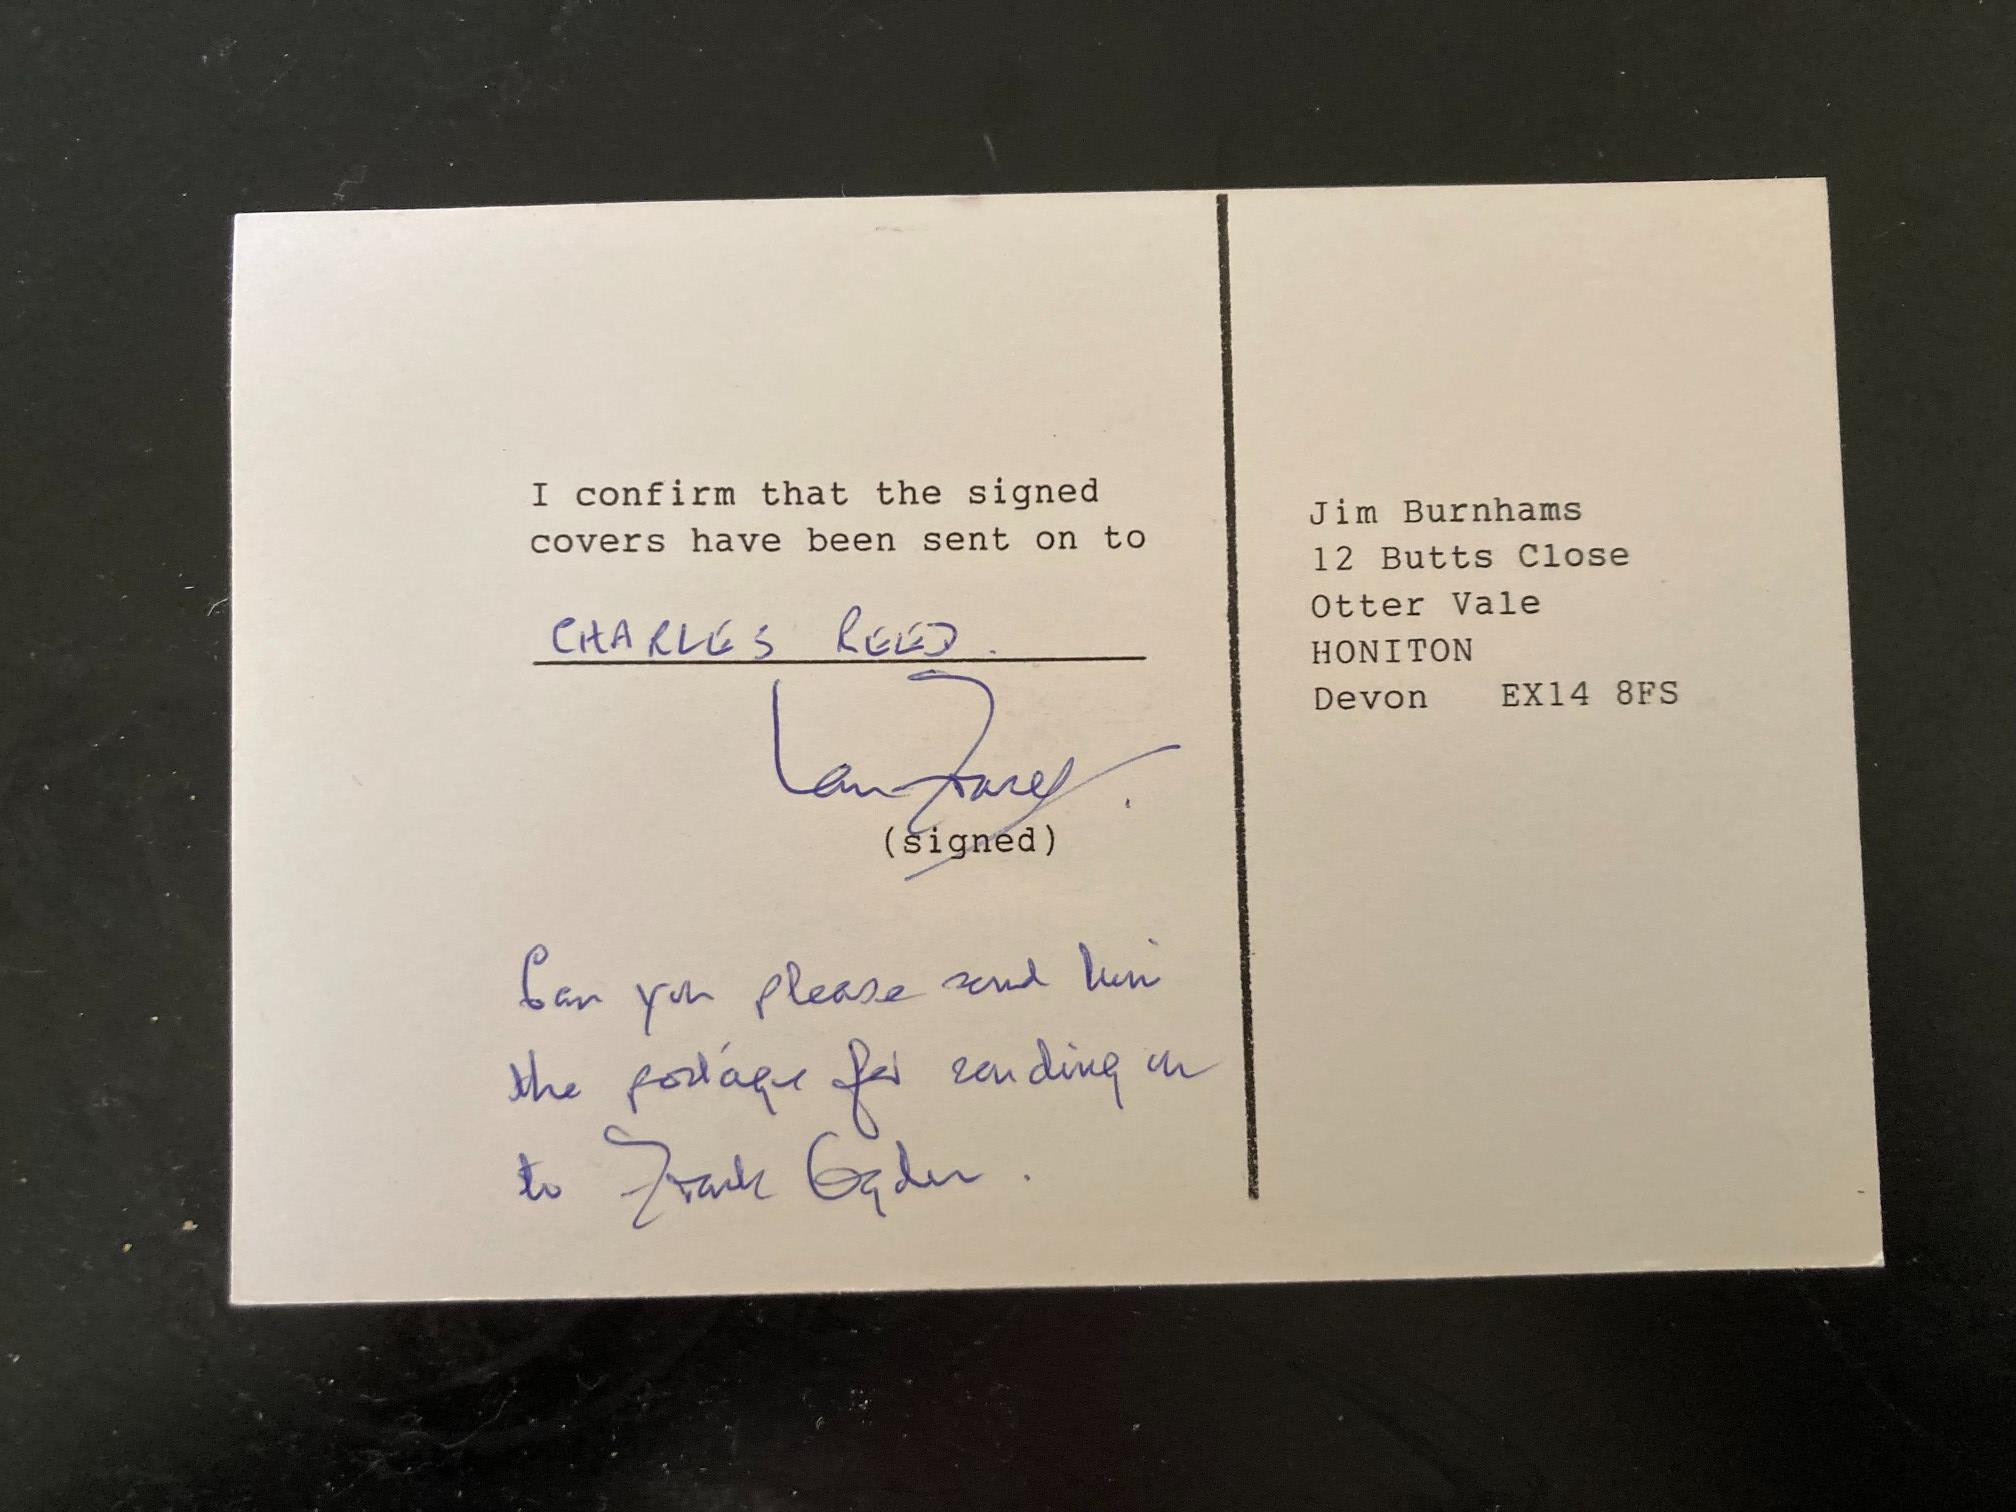 I confirm that the signed
covers have been sent on to
CHARLES REED.
(signed)
Can you please send him
the postage for sending on
to Frank Ogden.
Jim Burnhams
12 Butts Close
Otter Vale
HONITON
Devon EX14 8FS